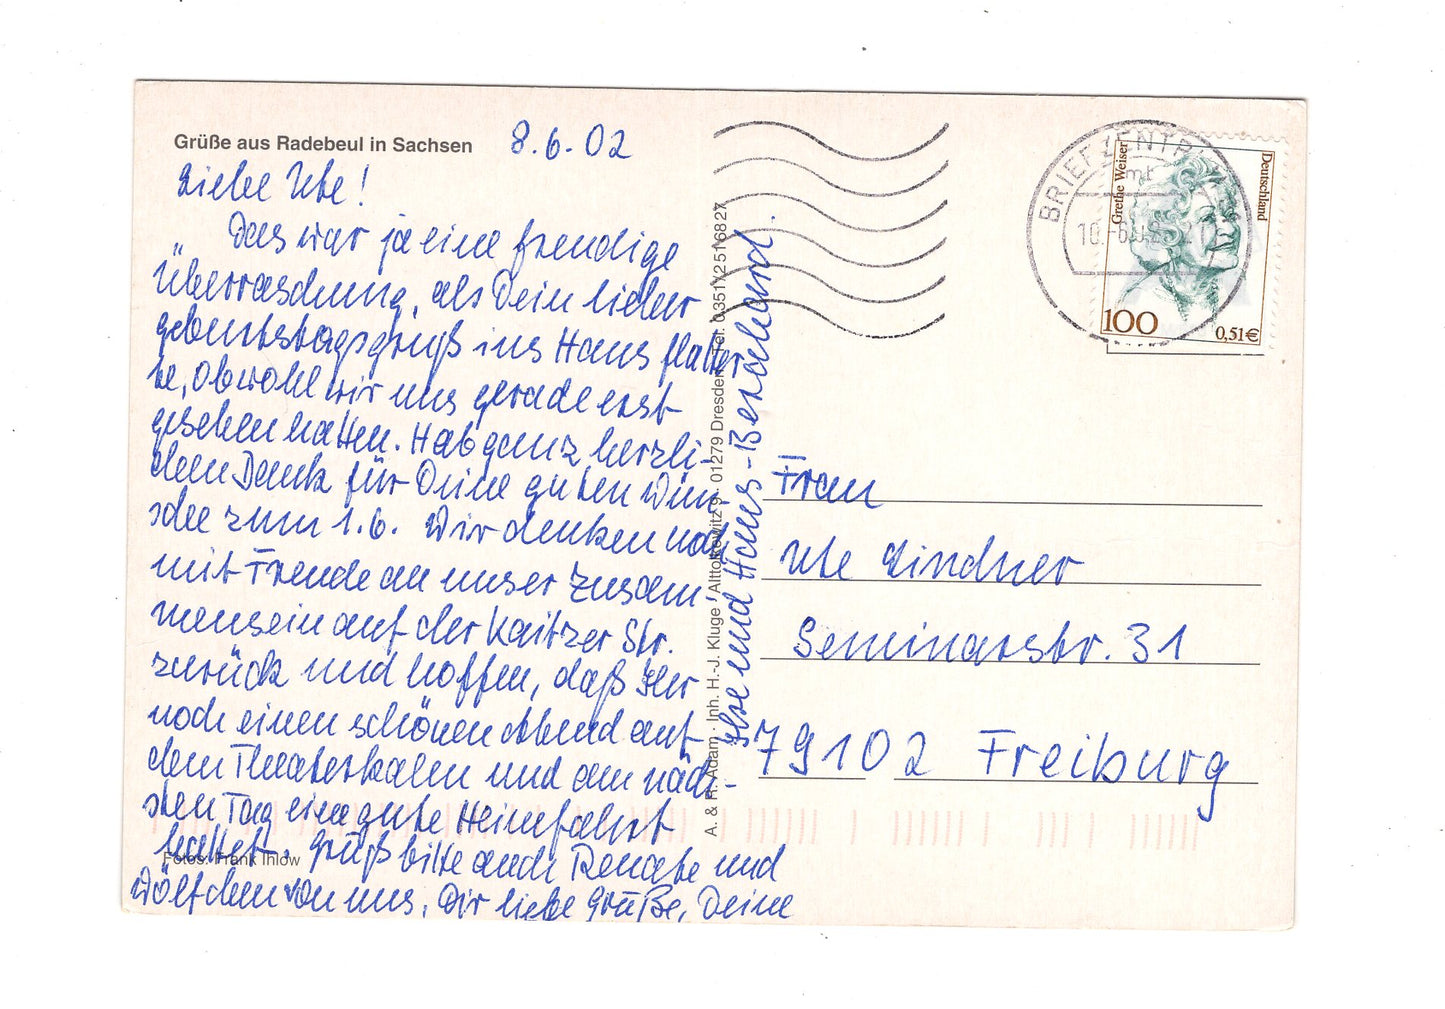 Grüße aus Radebeul in Sachsen
8.6.02
Liebe Ute!
Das war ja eine freudige
Überraschung, als Dein lieber
Geburtstagsgruß ins Haus flatter
te, obwohl wir uns gerade erst
gesehen hatten. Hab ganz herzli-
chen Dank für Deine guten Wün-
sche zum 1.6. Wir denken noch
mit Freude an unser Zusam-
mensein auf der Kaitzer Str.
zurück und hoffen, daß Ihr
noch einen schönen Abend auf
dem Theaterkahn und am näch-
sten Tag eine gute Heimfahrt
hattet. Grüß bitte auch Renate und
Wölfchen von uns. Dir liebe Grüße, Deine
Ilse und Hans-Bernhard.
Fotos: Frank Ihlow
A. & R. Adam · Inh. H.-J. Kluge · Alttolkewitz 9 · 01279 Dresden · Tel. 0351/2516827
BRIEFZENTR
10.
Grethe Weiser
Deutschland
100
0,51€
Frau
Ute Lindner
Seminarstr. 31
79102 Freiburg